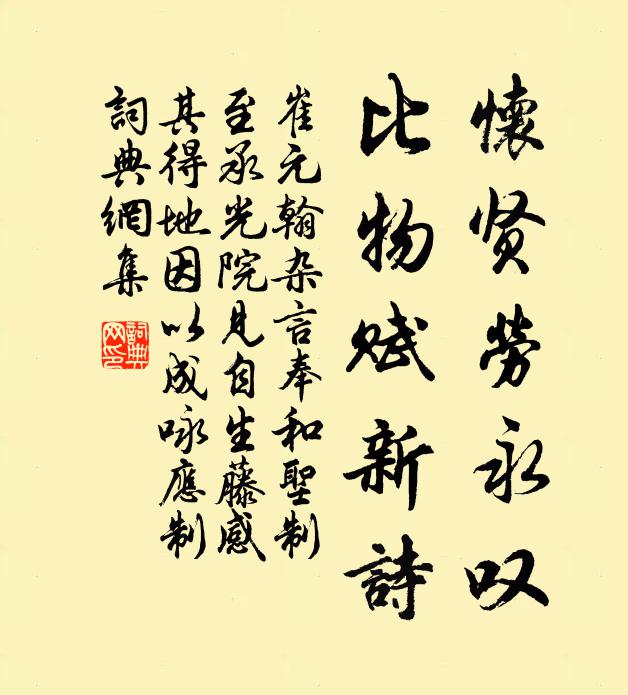 懷贤勞永叹
比物赋新詩
崔元翰杂言奉和聖制
至承光院見自生藤感
其得地因以成咏應制
詞典網集
詞典網印